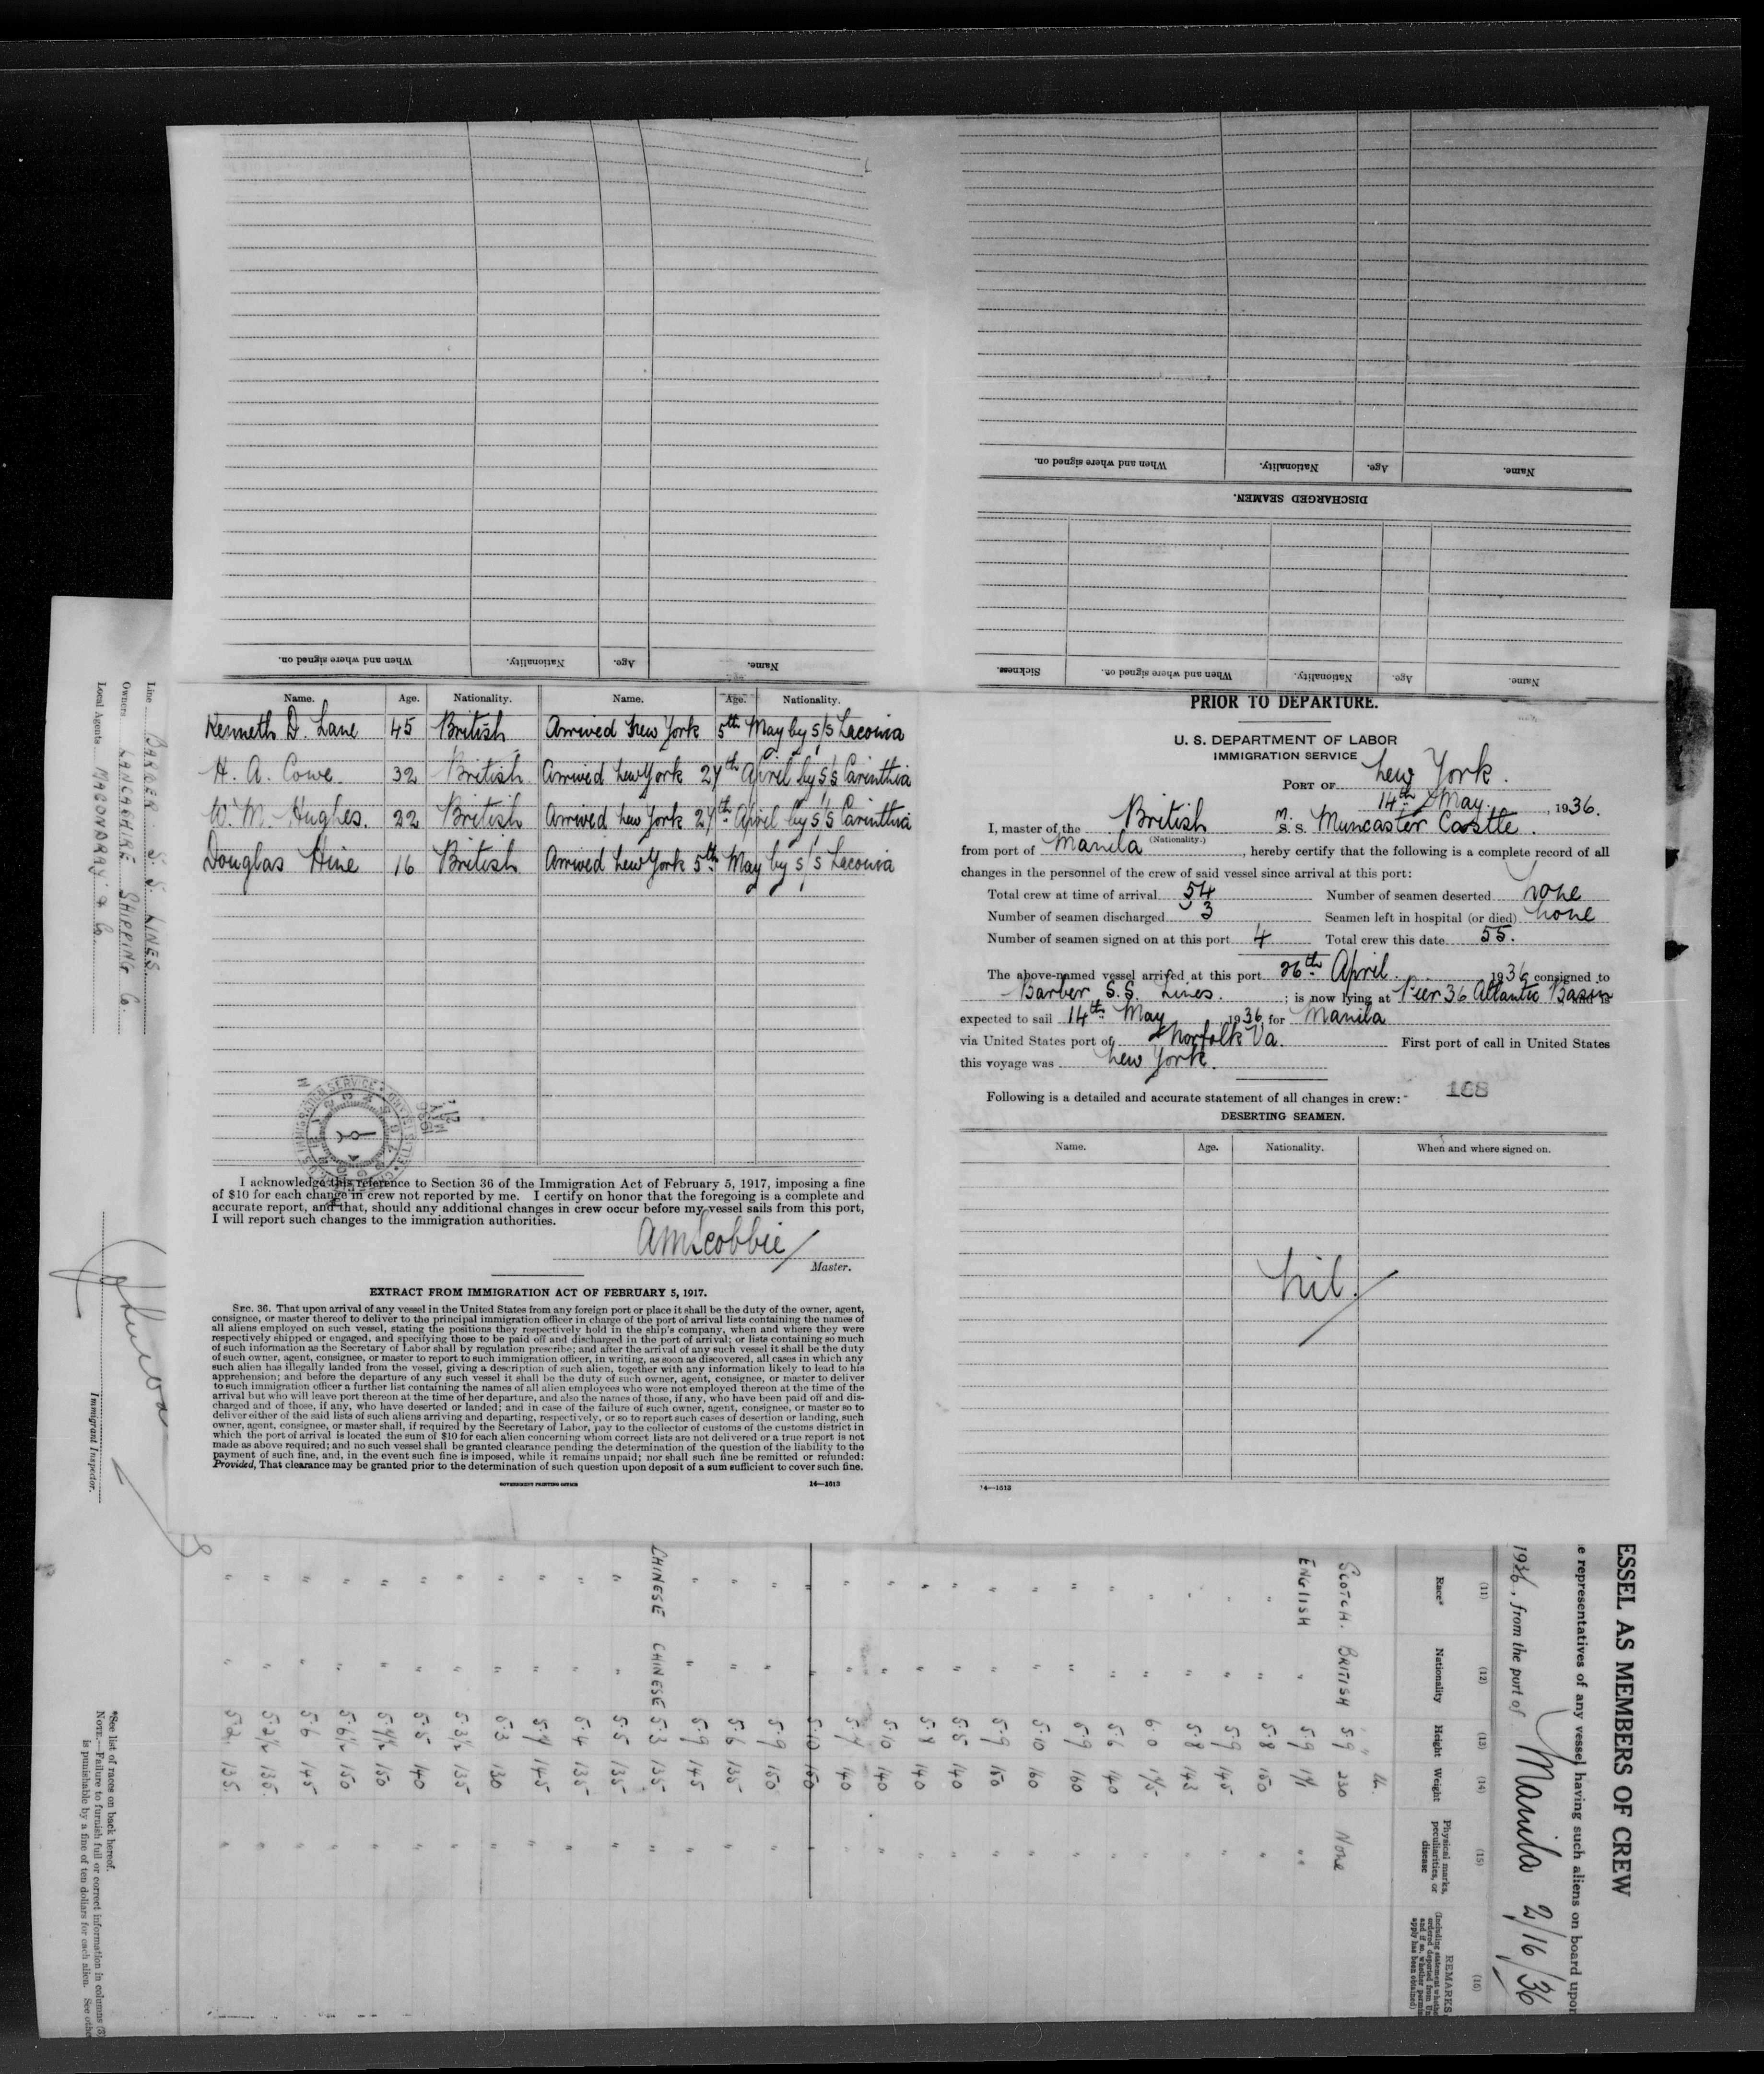 When and where signed on. Nationality. Age. Name.
DISCHARGED SEAMEN.
Sickness. When and where signed on. Nationality. Age. Name.
When and where signed on. Nationality. Age. Name.
Name. Age. Nationality. Name. Age. Nationality.
Kenneth D. Lane 45 British Arrived New York 5th May by s/s Laconia
H. A. Cowe 32 British Arrived New York 27th April by s/s Carinthia
W. M. Hughes. 22 British Arrived New York 27th April by s/s Carinthia
Douglas Hine 16 British Arrived New York 5th May by s/s Laconia
I acknowledge this reference to Section 36 of the Immigration Act of February 5, 1917, imposing a fine
of $10 for each change in crew not reported by me. I certify on honor that the foregoing is a complete and
accurate report, and that, should any additional changes in crew occur before my vessel sails from this port,
I will report such changes to the immigration authorities.
AMScobbie
Master.
EXTRACT FROM IMMIGRATION ACT OF FEBRUARY 5, 1917.
SEC. 36. That upon arrival of any vessel in the United States from any foreign port or place it shall be the duty of the owner, agent,
consignee, or master thereof to deliver to the principal immigration officer in charge of the port of arrival lists containing the names of
all aliens employed on such vessel, stating the positions they respectively hold in the ship's company, when and where they were
respectively shipped or engaged, and specifying those to be paid off and discharged in the port of arrival; or lists containing so much
of such information as the Secretary of Labor shall by regulation prescribe; and after the arrival of any such vessel it shall be the duty
of such owner, agent, consignee, or master to report to such immigration officer, in writing, as soon as discovered, all cases in which any
such alien has illegally landed from the vessel, giving a description of such alien, together with any information likely to lead to his
apprehension; and before the departure of any such vessel it shall be the duty of such owner, agent, consignee, or master to deliver
to such immigration officer a further list containing the names of all alien employees who were not employed thereon at the time of the
arrival but who will leave port thereon at the time of her departure, and also the names of those, if any, who have been paid off and dis-
charged and of those, if any, who have deserted or landed; and in case of the failure of such owner, agent, consignee, or master so to
deliver either of the said lists of such aliens arriving and departing, respectively, or so to report such cases of desertion or landing, such
owner, agent, consignee, or master shall, if required by the Secretary of Labor, pay to the collector of customs of the customs district in
which the port of arrival is located the sum of $10 for each alien concerning whom correct lists are not delivered or a true report is not
made as above required; and no such vessel shall be granted clearance pending the determination of the question of the liability to the
payment of such fine, and, in the event such fine is imposed, while it remains unpaid; nor shall such fine be remitted or refunded:
Provided, That clearance may be granted prior to the determination of such question upon deposit of a sum sufficient to cover such fine.
GOVERNMENT PRINTING OFFICE 14—1613
PRIOR TO DEPARTURE.
U. S. DEPARTMENT OF LABOR
IMMIGRATION SERVICE
PORT OF New York.
14th May, 1936.
I, master of the British M. S. S. Muncaster Castle.
(Nationality.)
from port of Manila, hereby certify that the following is a complete record of all
changes in the personnel of the crew of said vessel since arrival at this port:
Total crew at time of arrival 54 Number of seamen deserted none
Number of seamen discharged 3 Seamen left in hospital (or died) none
Number of seamen signed on at this port 4 Total crew this date 55.
The above-named vessel arrived at this port 26th April 1936 consigned to
Barber S.S. Lines.; is now lying at Pier 36 Atlantic Basin and is
expected to sail 14th May 1936, for Manila
via United States port of Norfolk Va. First port of call in United States
this voyage was New York.
Following is a detailed and accurate statement of all changes in crew:
168
DESERTING SEAMEN.
Name. Age. Nationality. When and where signed on.
nil.
14—1613
Line BARBER S. S. LINES
Owners LANCASHIRE SHIPPING Co.
Local Agents MACONDRAY & Co.
Immigrant Inspector.
*See list of races on back hereof.
NOTE.—Failure to furnish full or correct information in columns (3)
is punishable by a fine of ten dollars for each alien. See othe
ESSEL AS MEMBERS OF CREW
e representatives of any vessel having such aliens on board upon
1936, from the port of Manila 2/16/36
(11) (12) (13) (14) (15) (16)
Race* Nationality Height Weight Physical marks, peculiarities, or disease REMARKS
SCOTCH. BRITISH 5.9 230 None
ENGLISH " 5.9 171 "
" " 5.8 150 "
" " 5.9 145 "
" " 5.8 143 "
" " 6.0 175 "
" " 5.6 140 "
" " 5.9 160 "
" " 5.10 160 "
" " 5.9 150 "
" " 5.5 140 "
" " 5.8 140 "
" " 5.10 140 "
" " 5.7 140 "
" " 5.10 150 "
" " 5.9 150 "
" " 5.6 135 "
" " 5.9 145 "
CHINESE CHINESE 5.3 135 "
" " 5.5 135 "
" " 5.4 135 "
" " 5.7 145 "
" " 5.3 130 "
" " 5.3½ 135 "
" " 5.5 140 "
" " 5.7½ 150 "
" " 5.6½ 150 "
" " 5.6 145 "
" " 5.2½ 135 "
" " 5.2 135 "